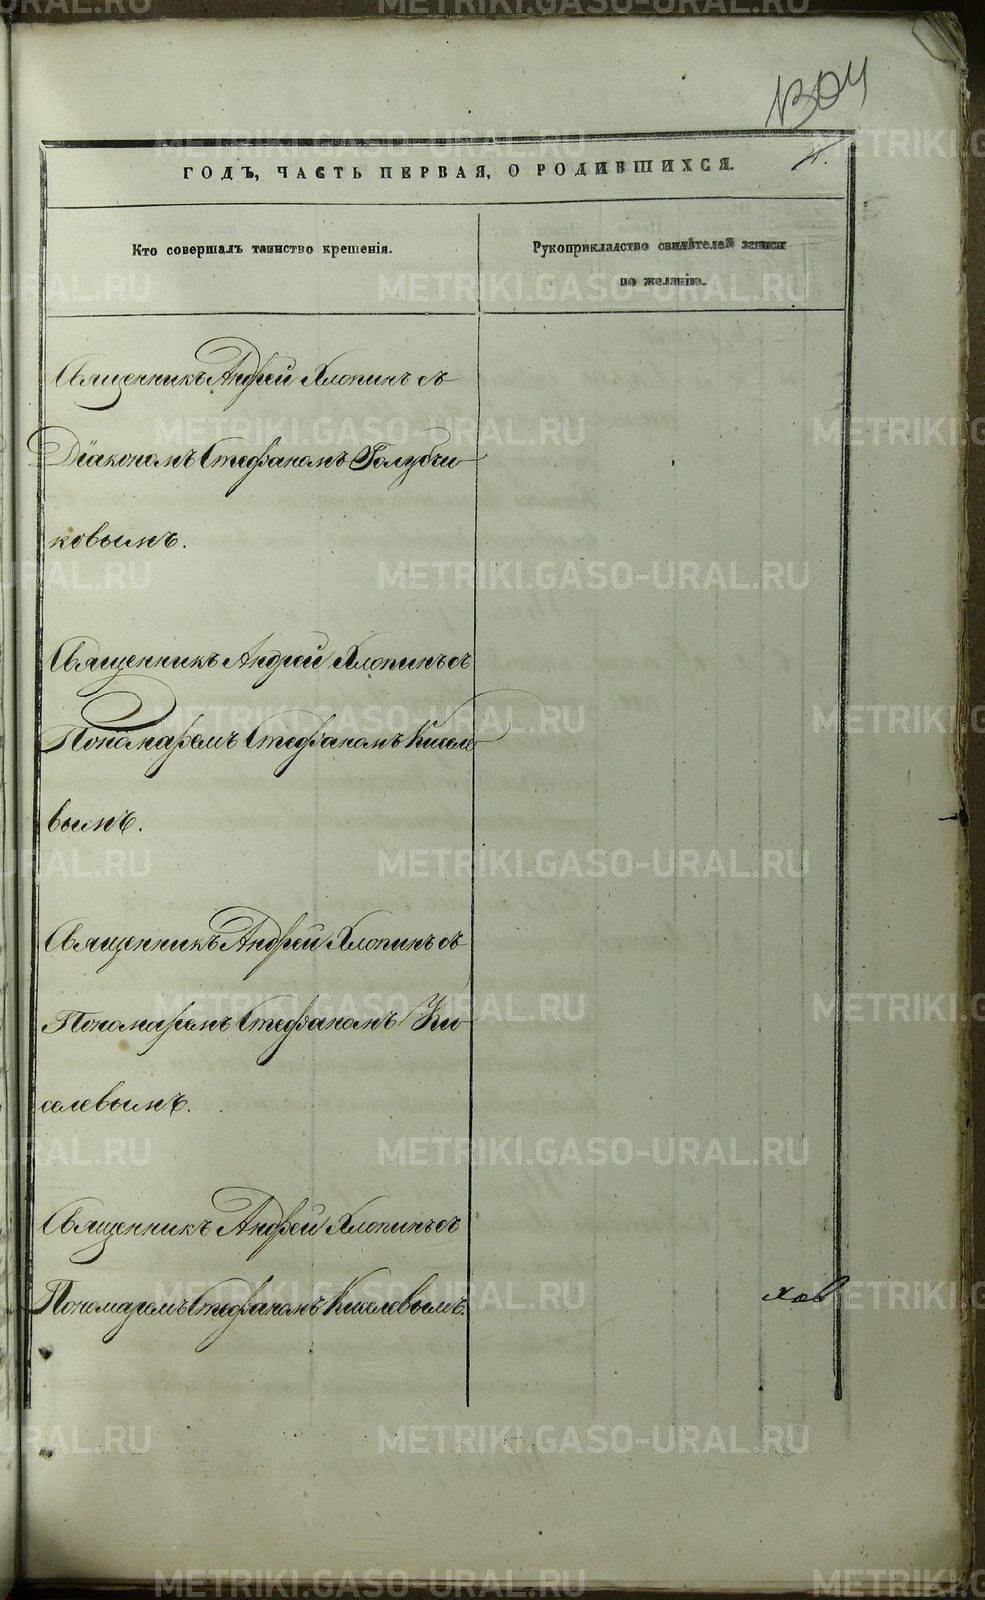 1304
ГОДЪ, ЧАСТЬ ПЕРВАЯ, О РОДИВШИХСЯ.
Кто совершалъ таинство крещенія.
Рукоприкладство свидѣтелей записи
по желанію.
Священникъ Андрей Хлопинъ съ
Діакономъ Стефаномъ Голубчи-
ковымъ.
Священникъ Андрей Хлопинъ съ
Пономаремъ Стефаномъ Кисele
вымъ.
Священникъ Андрей Хлопинъ съ
Пономаремъ Стефаномъ Ки-
селевымъ.
Священникъ Андрей Хлопинъ съ
Пономаремъ Стефаномъ Киселевымъ.
METRIKI.GASO-URAL.RU